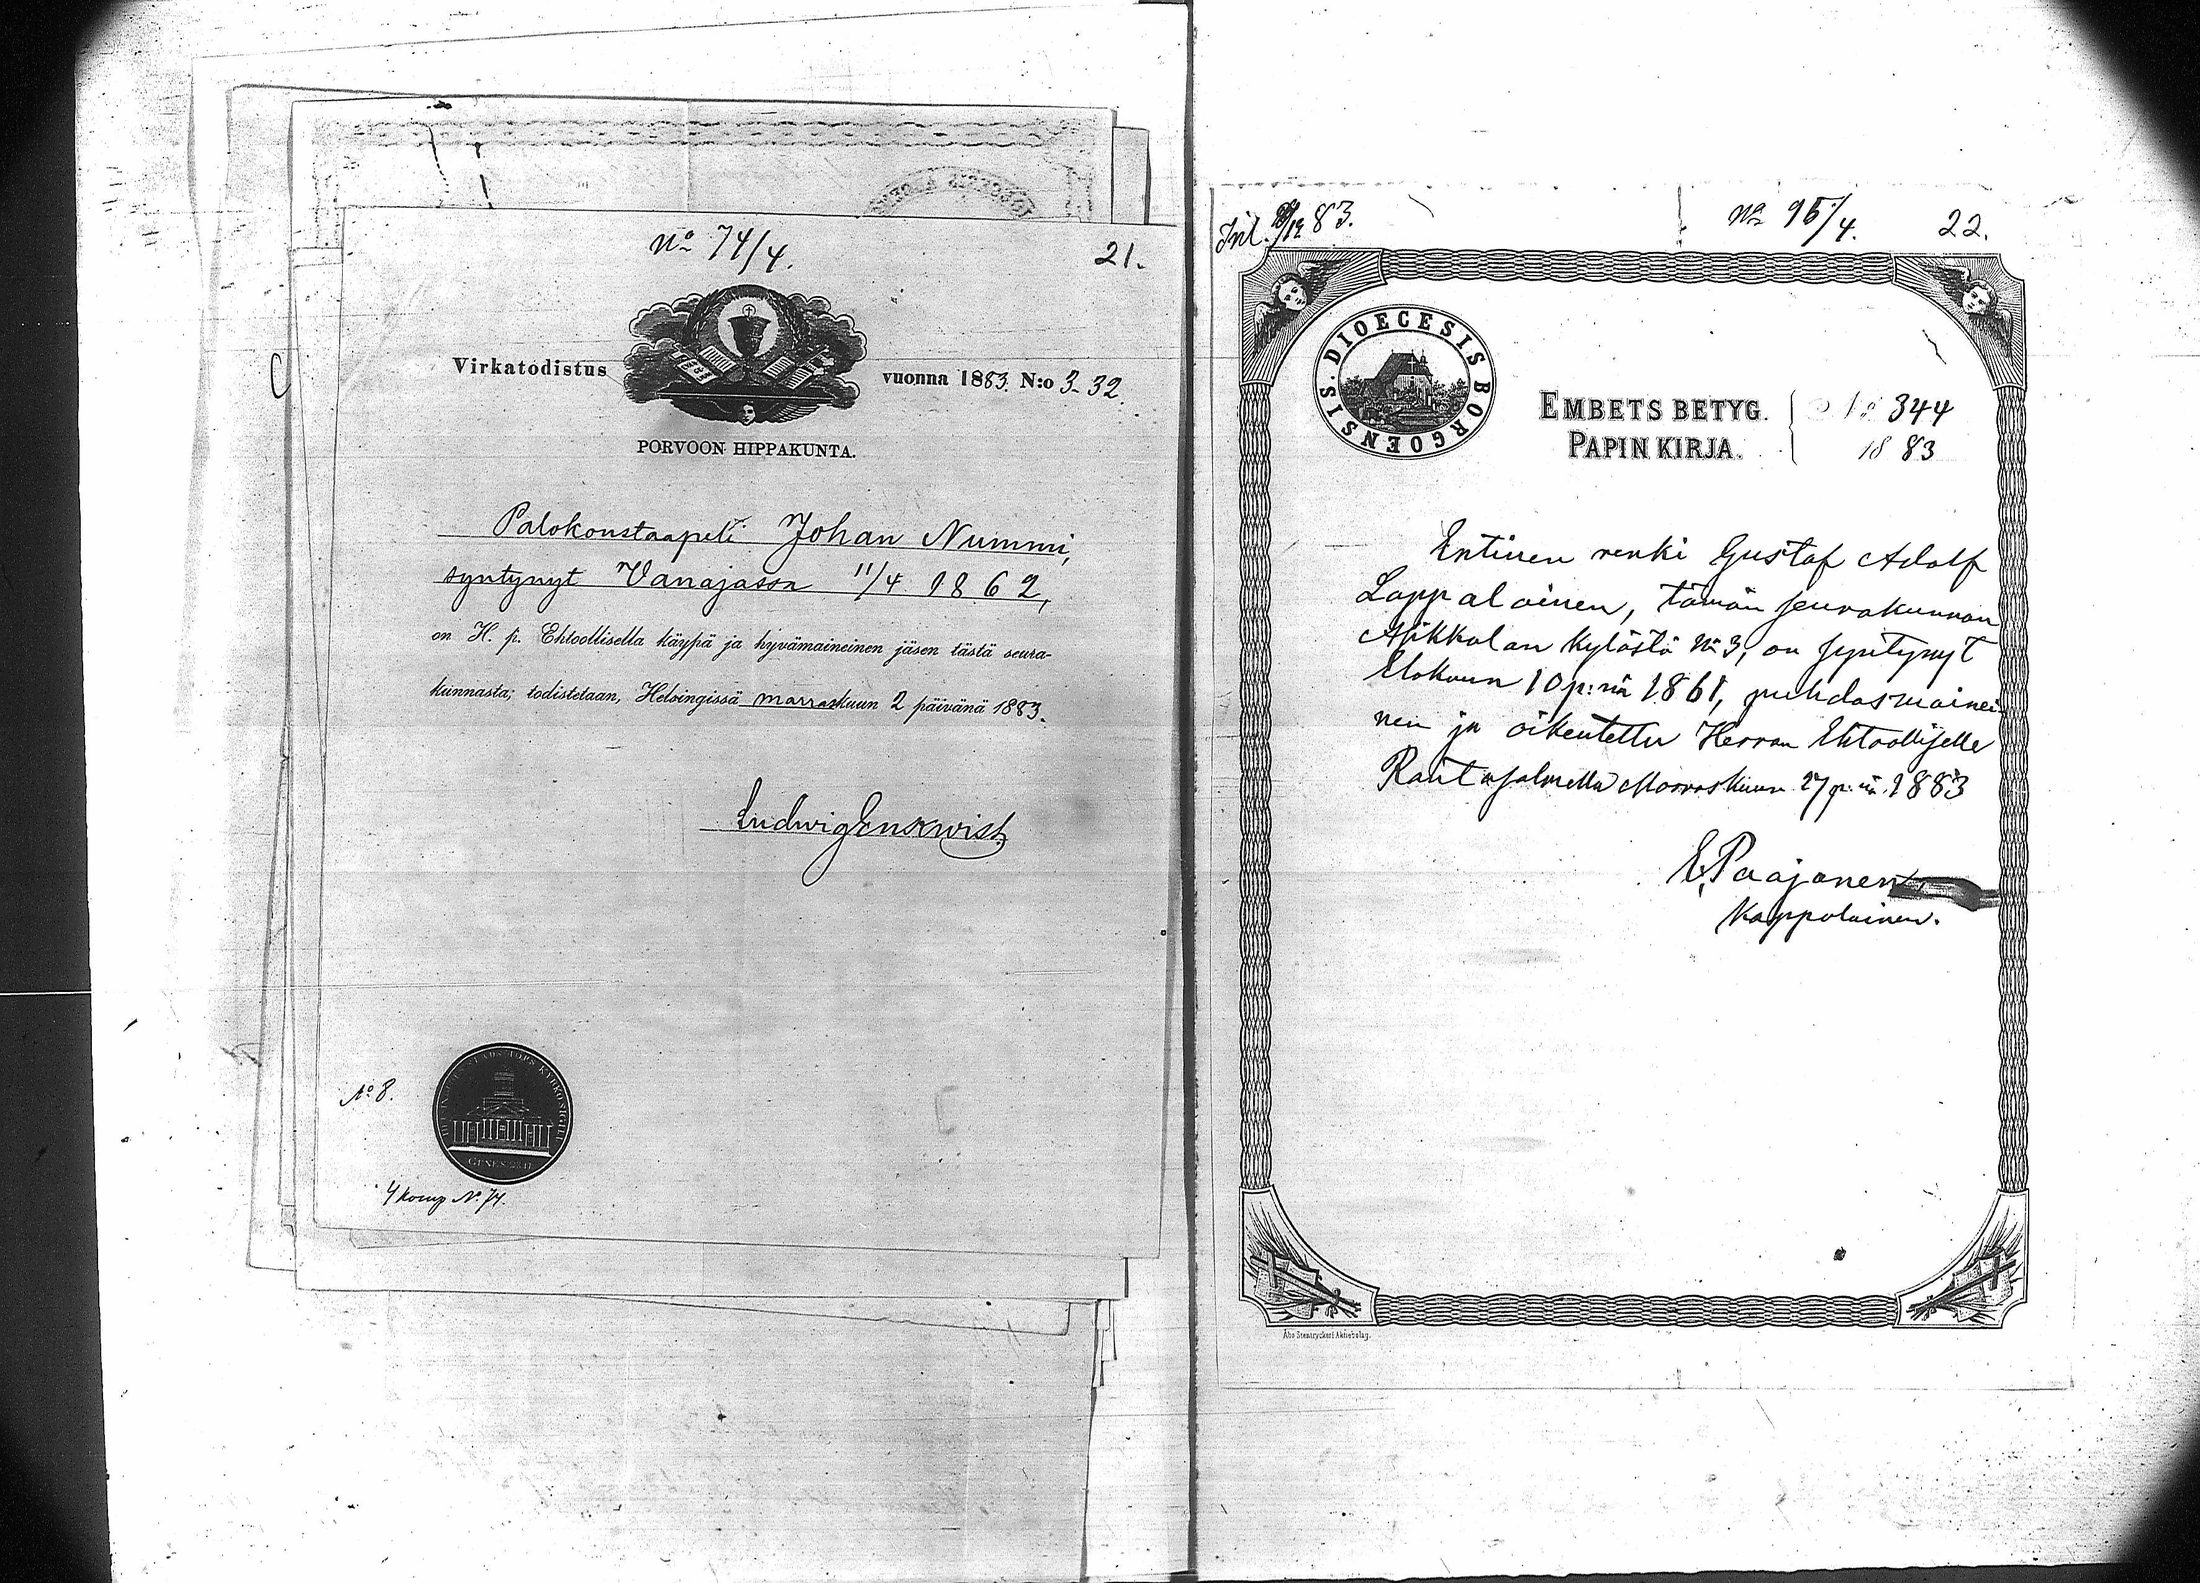 No 74/4.
21.
Virkatodistus vuonna 1883. N:o 3-32.
PORVOON HIPPAKUNTA.
Palokonstaapeli Johan Nummi,
syntynyt Vanajassa 11/4 1862,
on H. p. Ehtoollisella käypä ja hyvämaineinen jäsen tästä seura-
kunnasta; todistetaan, Helsingissä marraskuun 2 päivänä 1883.
Ludwig Enqwist
No 8.
GENES 28.17
4 komp No 74.
Inl. 83.
No 95/4.
22.
DIOECESIS BORGOENSIS.
EMBETS BETYG. No 344
PAPIN KIRJA. 1883
Entinen renki Gustaf Adolf
Lappalainen, tämän seurakunnan
Asikkalan kylästä No 3, on syntynyt
Elokuun 10 p:nä 1861, puhdasmainei-
nen ja oikeutettu Herran Ehtoolliselle
Rantasalmella Marraskuun 27 p:nä 1883
E. Paajanen
Kappalainen.
Åbo Stentryckeri Aktiebolag.